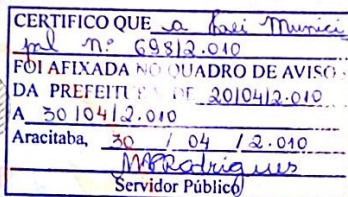 CERTIFICO QUE a Lei Munici
pal nº 698/2.010
FOI AFIXADA NO QUADRO DE AVISO
DA PREFEITURA DE 20/04/2.010
A 30/04/2.010
Aracitaba, 30 / 04 / 2.010
MAPRodrigues
Servidor Público